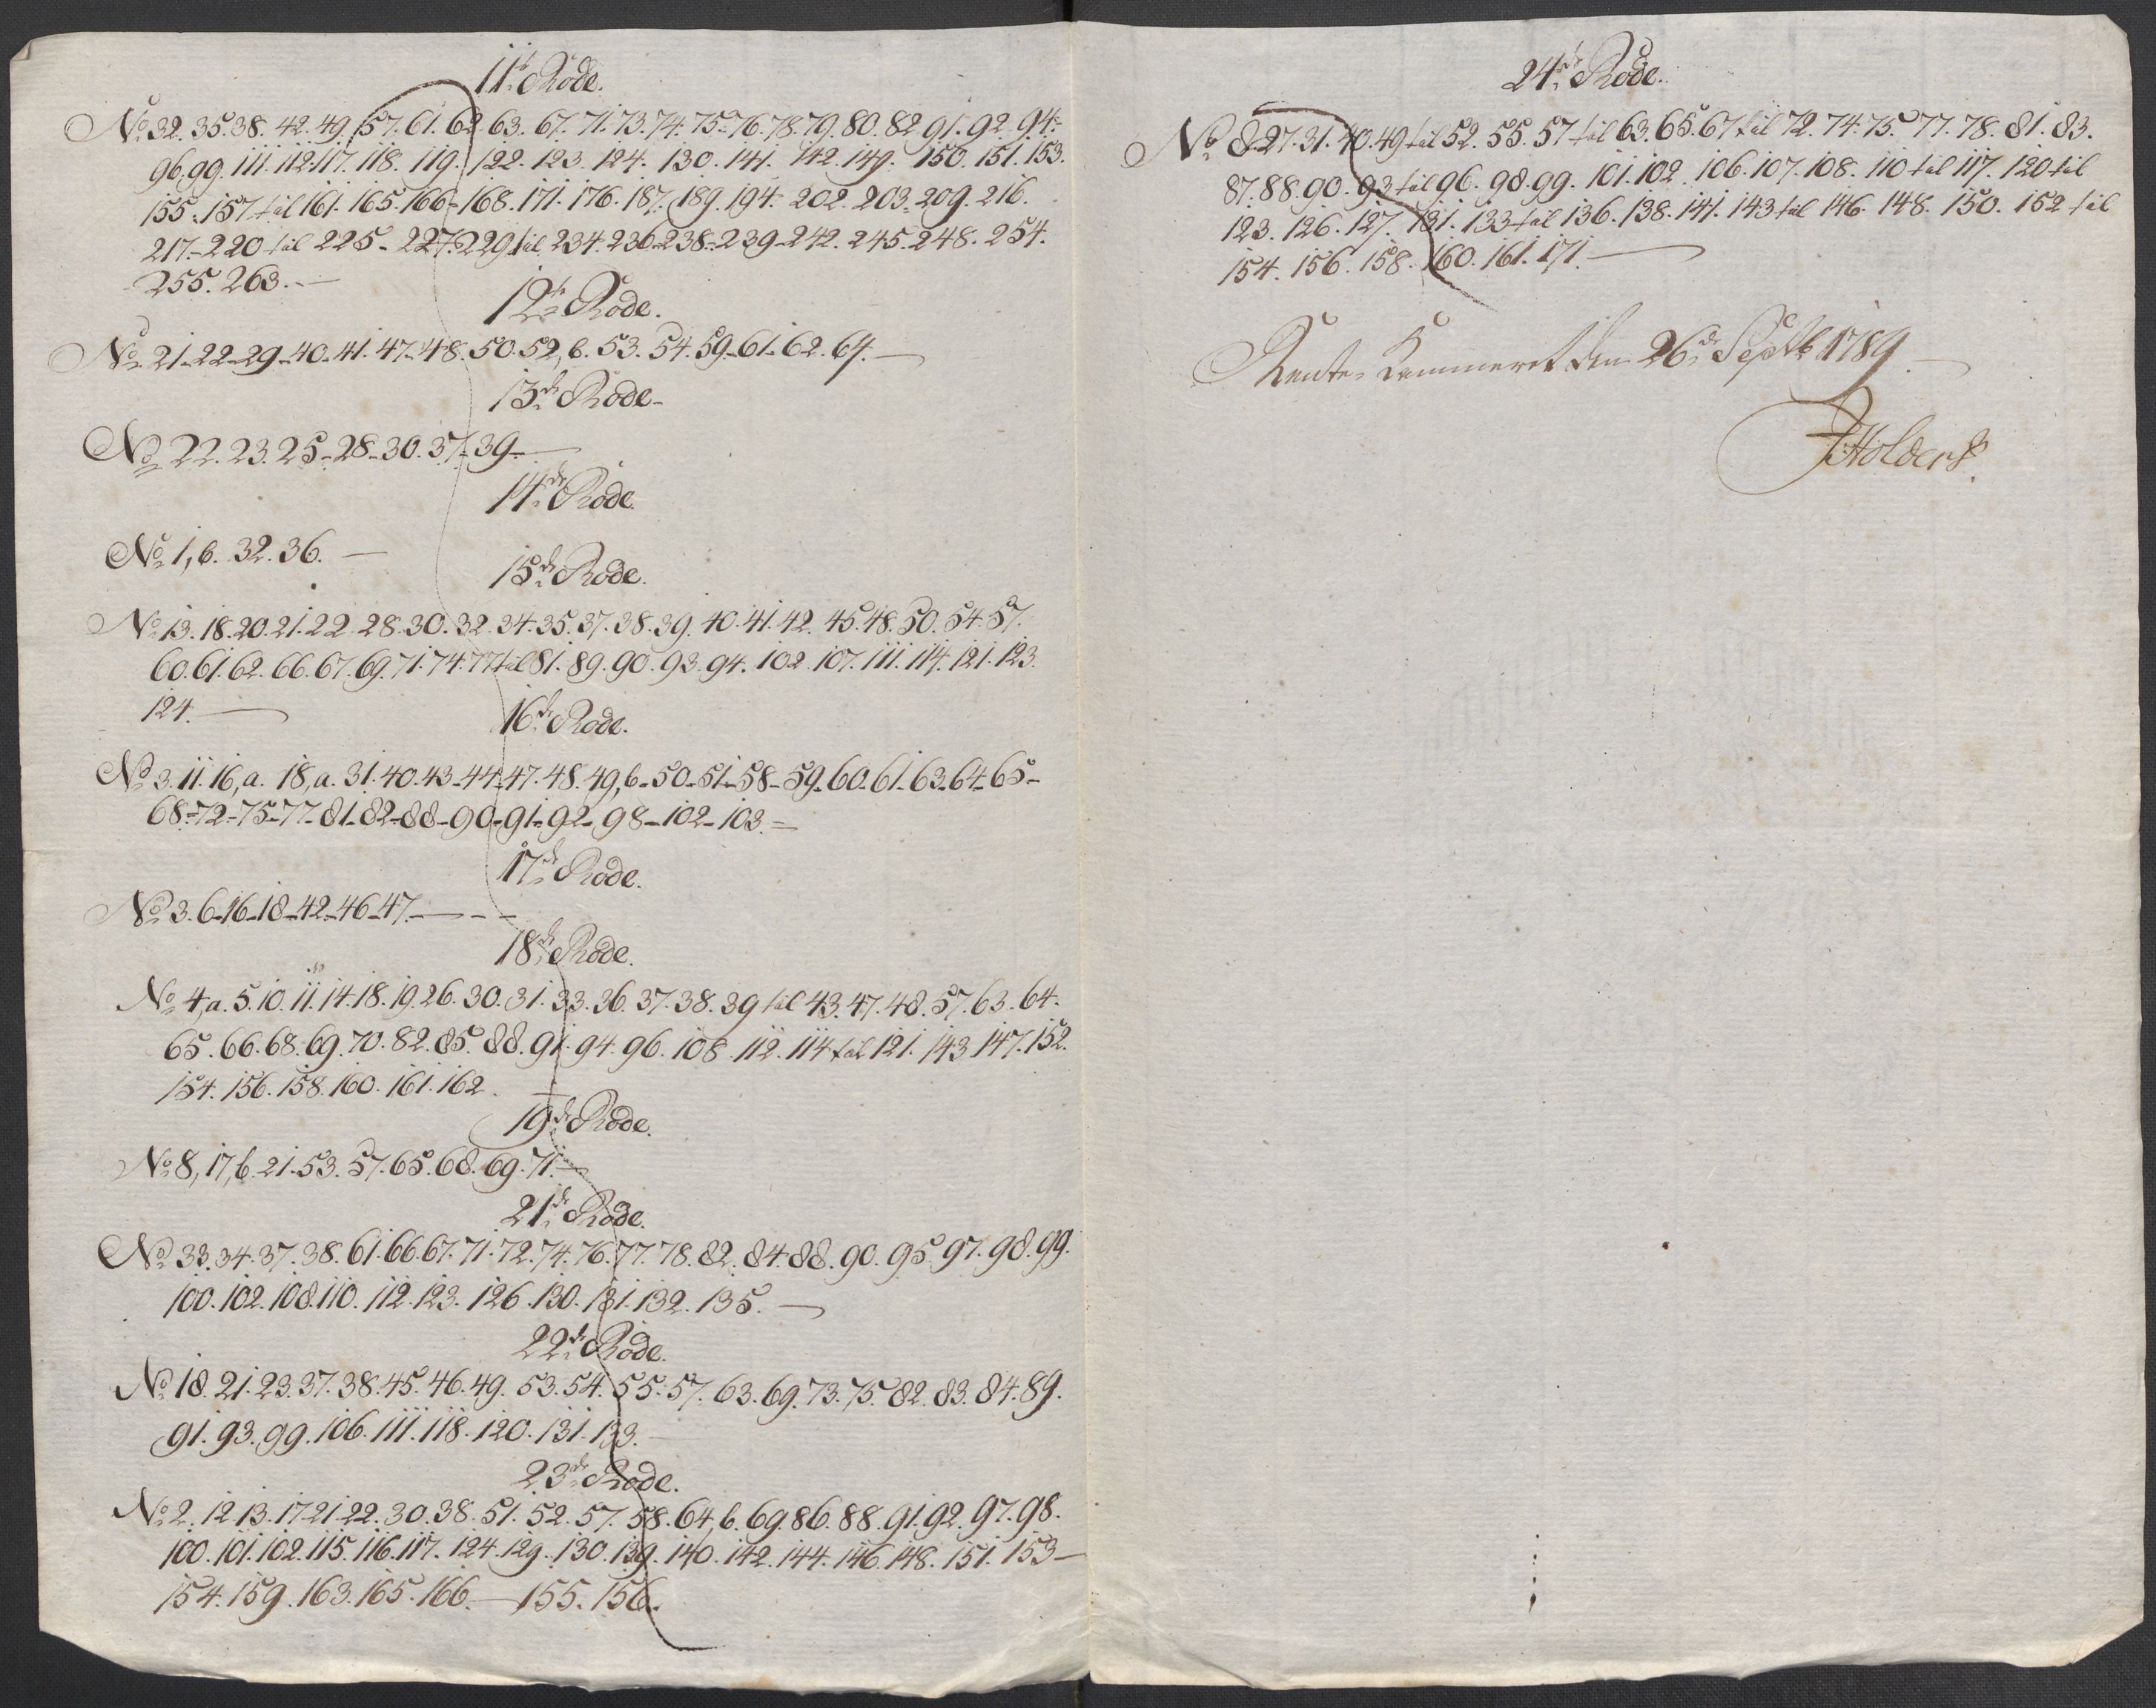 11te Rode.
No 32. 35. 38. 42. 49. 57. 61. 62. 63. 67. 71. 73. 74. 75. 76. 78. 79. 80. 82. 91. 92. 94.
96. 99. 111. 112. 117. 118. 119. 122. 123. 124. 130. 141. 142. 149. 150. 151. 153.
155. 157 til 161. 165. 166. 168. 171. 176. 187. 189. 194. 202. 203. 209. 216.
217. 220 til 225. 227. 229 til 234. 236. 238. 239. 242. 245. 248. 254.
255. 263.
12te Rode.
No 21. 22. 29. 40. 41. 47. 48. 50. 52, b. 53. 54. 59. 61. 62. 64.
13de Rode
No 22. 23. 25. 28. 30. 37. 39.
14de Rode
No 1, b. 32. 36.
15de Rode.
No 13. 18. 20. 21. 22. 28. 30. 32. 34. 35. 37. 38. 39. 40. 41. 42. 45. 48. 50. 54. 57.
60. 61. 62. 66. 67. 69. 71. 74. 77 til 81. 89. 90. 93. 94. 102. 107. 111. 114. 121. 123.
124.
16de Rode.
No 3. 11. 16, a. 18, a. 31. 40. 43. 44. 47. 48. 49, b. 50. 51. 58. 59. 60. 61. 63. 64. 65.
68. 72. 75. 77. 81. 82. 88. 90. 91. 92. 98. 102. 103.
17de Rode.
No 3. 6. 16. 18. 42. 46. 47.
18de Rode.
No 4, a. 5. 10. 11. 14. 18. 19. 26. 30. 31. 33. 36. 37. 38. 39 til 43. 47. 48. 57. 63. 64.
65. 66. 68. 69. 70. 82. 85. 88. 91. 94. 96. 108. 112. 114 til 121. 143. 147. 152.
154. 156. 158. 160. 161. 162.
19de Rode.
No 8, 17, b. 21. 53. 57. 65. 68. 69. 71.
21de Rode.
No 33. 34. 37. 38. 61. 66. 67. 71. 72. 74. 76. 77. 78. 82. 84. 88. 90. 95. 97. 98. 99.
100. 102. 108. 110. 112. 123. 126. 130. 131. 132. 135.
22de Rode.
No 18. 21. 23. 37. 38. 45. 46. 49. 53. 54. 55. 57. 63. 69. 73. 75. 82. 83. 84. 89.
91. 93. 99. 106. 111. 118. 120. 131. 133.
23de Rode.
No 2. 12. 13. 17. 21. 22. 30. 38. 51. 52. 57. 58. 64, b. 69. 86. 88. 91. 92. 97. 98.
100. 101. 102. 115. 116. 117. 124. 129. 130. 139. 140. 142. 144. 146. 148. 151. 153
154. 159. 163. 165. 166. — 155. 156.
24de Rode.
No 8. 27. 31. 40. 49 til 52. 55. 57 til 63. 65. 67 til 72. 74. 75. 77. 78. 81. 83.
87. 88. 90. 93 til 96. 98. 99. 101. 102. 106. 107. 108. 110 til 117. 120 til
123. 126. 127. 131. 133 til 136. 138. 141. 143 til 146. 148. 150. 152 til
154. 156. 158. 160. 161. 171.
Rente Kammeret den 26de Septb 1789